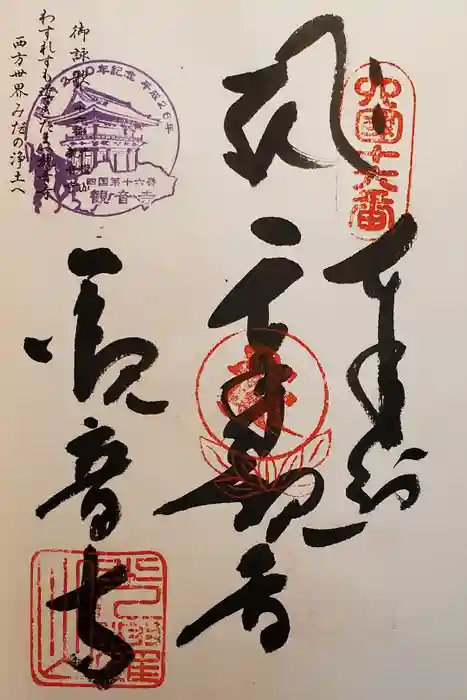 四国十六番
奉納
千手観音
観音寺
御詠歌
わすれずも導きたまへ観音寺
西方世界みだの浄土へ
200年記念 平成26年
四国第十六番
観音寺